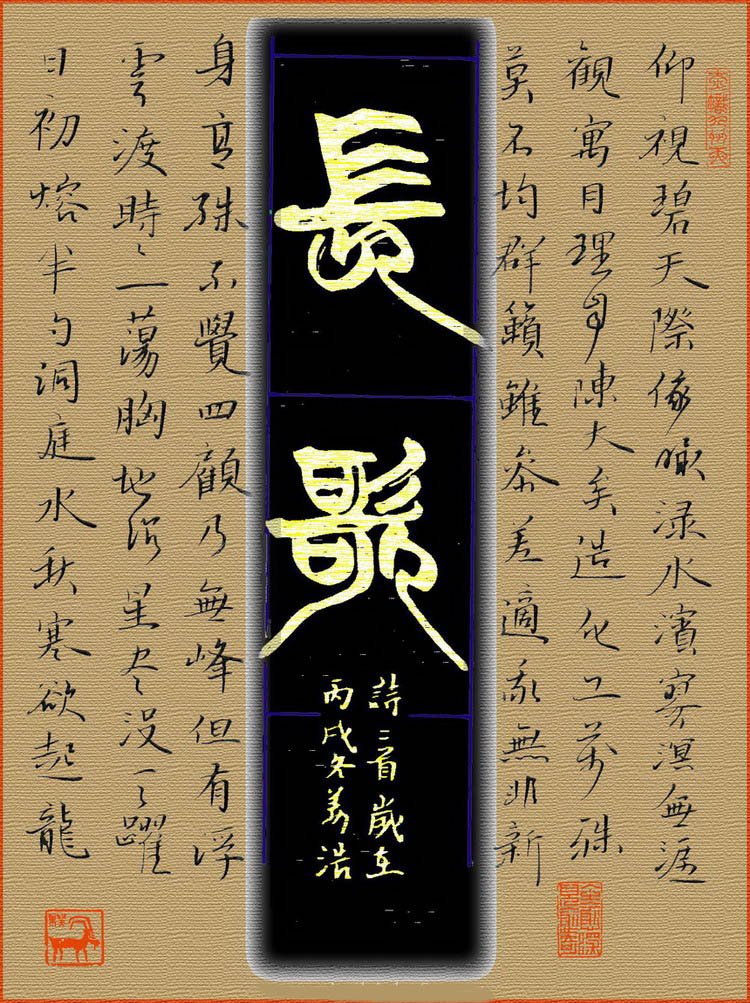 仰視碧天際俯瞰渌水濱寥溟無涯
觀寓目理自陳大矣造化工萬殊
莫不均群籟雖參差適我無非新
長歌
詩二首歲在
丙戌冬
身高殊不覺四顧乃無峰但有浮
雲渡時〻一蕩胸地沉星尽沒天躍
日初熔半勺洞庭水秋寒欲起龍